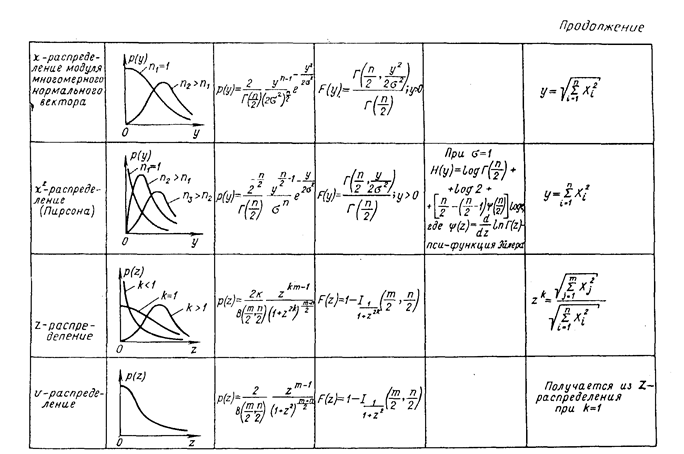 Продолжение
χ-распреде-
ление модуля
многомерного
нормального
вектора
p(y)
n₁=1
n₂>n₁
0
y
p(y)=2/(Γ(n/2)(2σ²)^(n/2)) y^(n-1) e^(-y²/2σ²)
F(y)=Γ(n/2, y²/2σ²)/Γ(n/2); y>0
y=√(Σ_{i=1}^{n} X_i²)
χ²-распреде-
ление
(Пирсона)
p(y)
n₁=1
n₂>n₁
n₃>n₂
0
y
p(y)=2^(-n/2)/Γ(n/2) y^(n/2-1)/σⁿ e^(-y/2σ²)
F(y)=Γ(n/2, y/2σ²)/Γ(n/2); y>0
При σ=1
H(y)=logΓ(n/2)+
+log2+
+[n/2-(n/2-1)ψ(n/2)]log e,
где ψ(z)=d/dz lnΓ(z)-
пси-функция Эйлера
y=Σ_{i=1}^{n} X_i²
Z-распре-
деление
p(z)
k<1
k=1
k>1
0
z
p(z)=2к/B(m/2, n/2) z^(km-1)/(1+z^(2k))^((m+n)/2)
F(z)=1-I_{1/(1+z^(2k))}(m/2, n/2)
z^k=√(Σ_{j=1}^{m} X_j²)/√(Σ_{i=1}^{n} X_i²)
υ-распреде-
ление
p(z)
0
z
p(z)=2/B(m/2, n/2) z^(m-1)/(1+z²)^((m+n)/2)
F(z)=1-I_{1/(1+z²)}(m/2, n/2)
Получается из Z-
распределения
при k=1